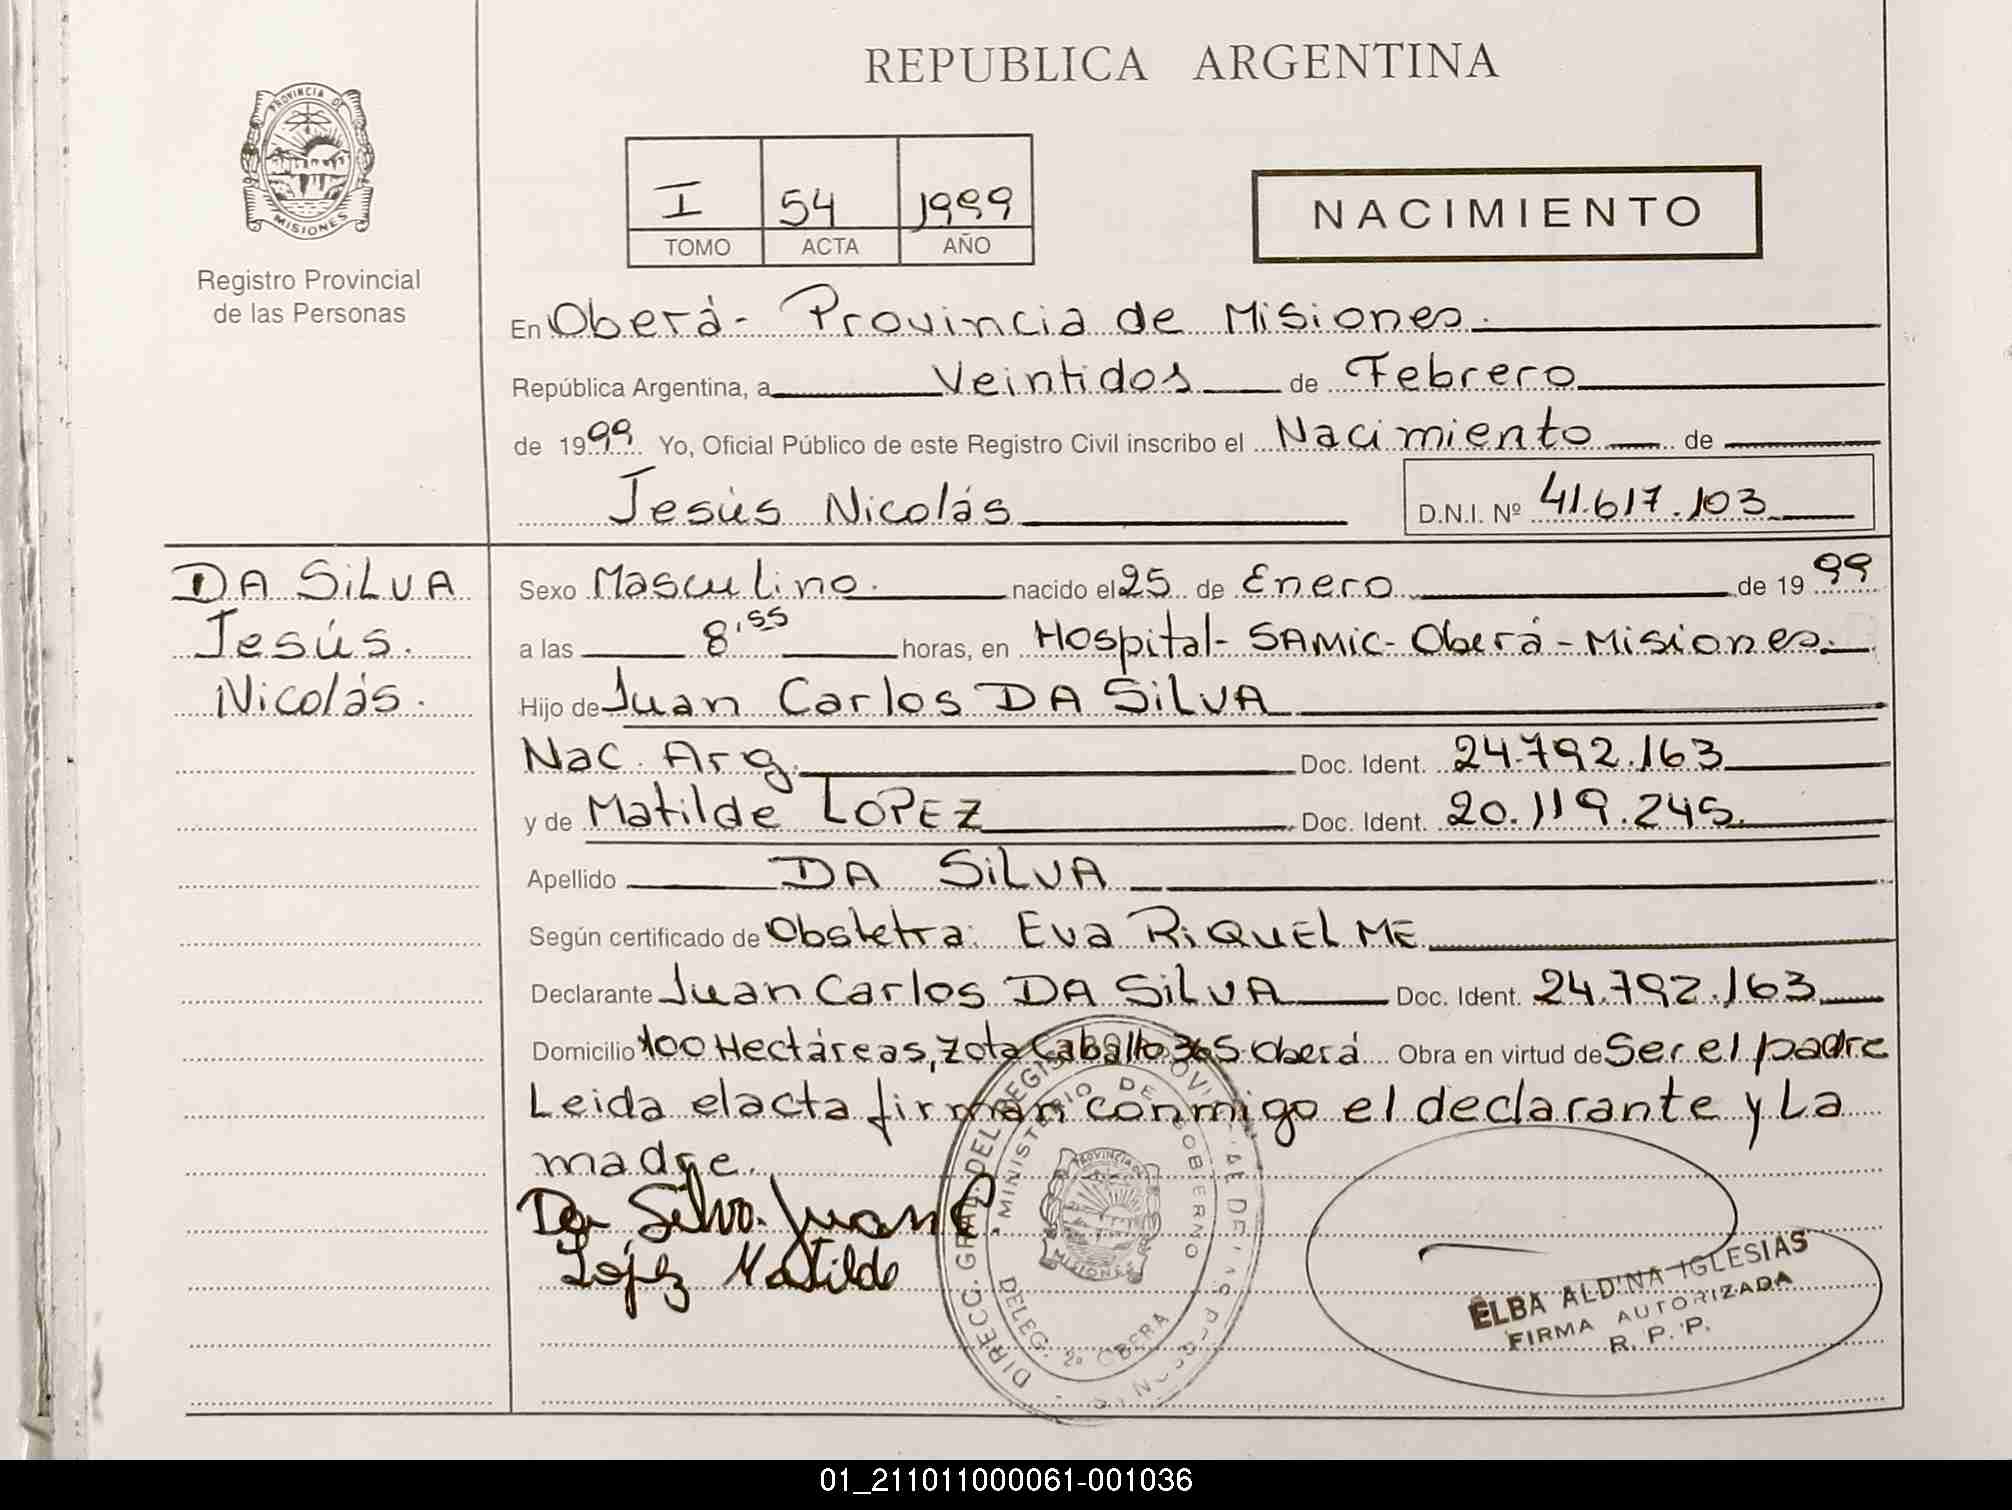 REPUBLICA ARGENTINA
PROVINCIA DE
MISIONES
Registro Provincial
de las Personas
I 54 1999
TOMO ACTA AÑO
NACIMIENTO
En Oberá - Provincia de Misiones.
República Argentina, a Veintidos de Febrero
de 1999 Yo, Oficial Público de este Registro Civil inscribo el Nacimiento de
Jesús Nicolás D.N.I. Nº 41.617.103
DA SiLVA
Jesús.
Nicolás.
Sexo Masculino. nacido el 25 de Enero de 1999
a las 8'55 horas, en Hospital - SAMIC - Oberá - Misiones.
Hijo de Juan Carlos DA SiLVA
Nac. Arg. Doc. Ident. 24.792.163
y de Matilde LOPEZ Doc. Ident. 20.119.245.
Apellido DA SiLVA
Según certificado de Obstetra: Eva RiQUELME
Declarante Juan Carlos DA SiLVA Doc. Ident. 24.792.163
Domicilio 100 Hectáreas, Zota Caballo 365 Oberá Obra en virtud de Ser el padre
Leida el acta firman conmigo el declarante y La
madre.
Da Silva Juan C
López Matilde
DIRECC. GRAL. DEL REGISTRO PROVINCIAL DE LAS PERSONAS
MINISTERIO DE GOBIERNO
PROVINCIA DE
MISIONES
DELEG. 2ª OBERA
ELBA ALDINA IGLESIAS
FIRMA AUTORIZADA
R. P. P.
01_211011000061-001036